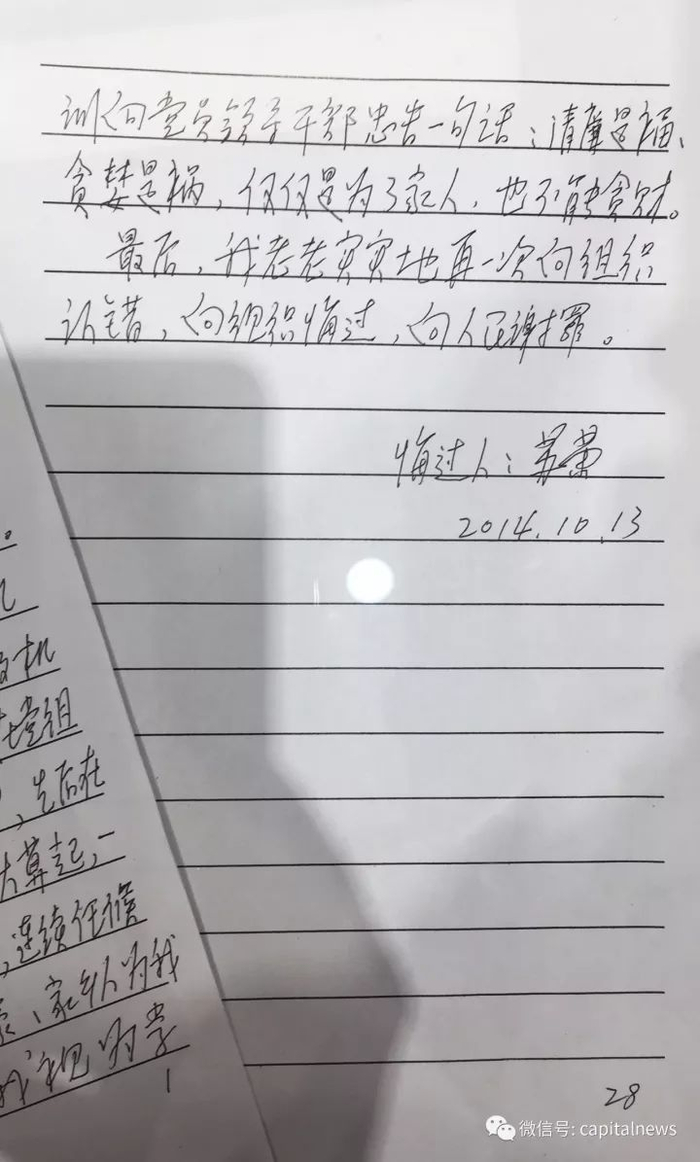 训向党员领导干部忠告一句话：清廉是福、
贪婪是祸，仅仅是为了家人，也不能贪财。
最后，我老老实实地再一次向组织
认错，向组织悔过，向人民谢罪。
悔过人：苏荣
2014.10.13
。
机
党组
，先后在
算起，一
，连续任满
、家乡人为我
我视为掌
1
28
微信号: capitalnews